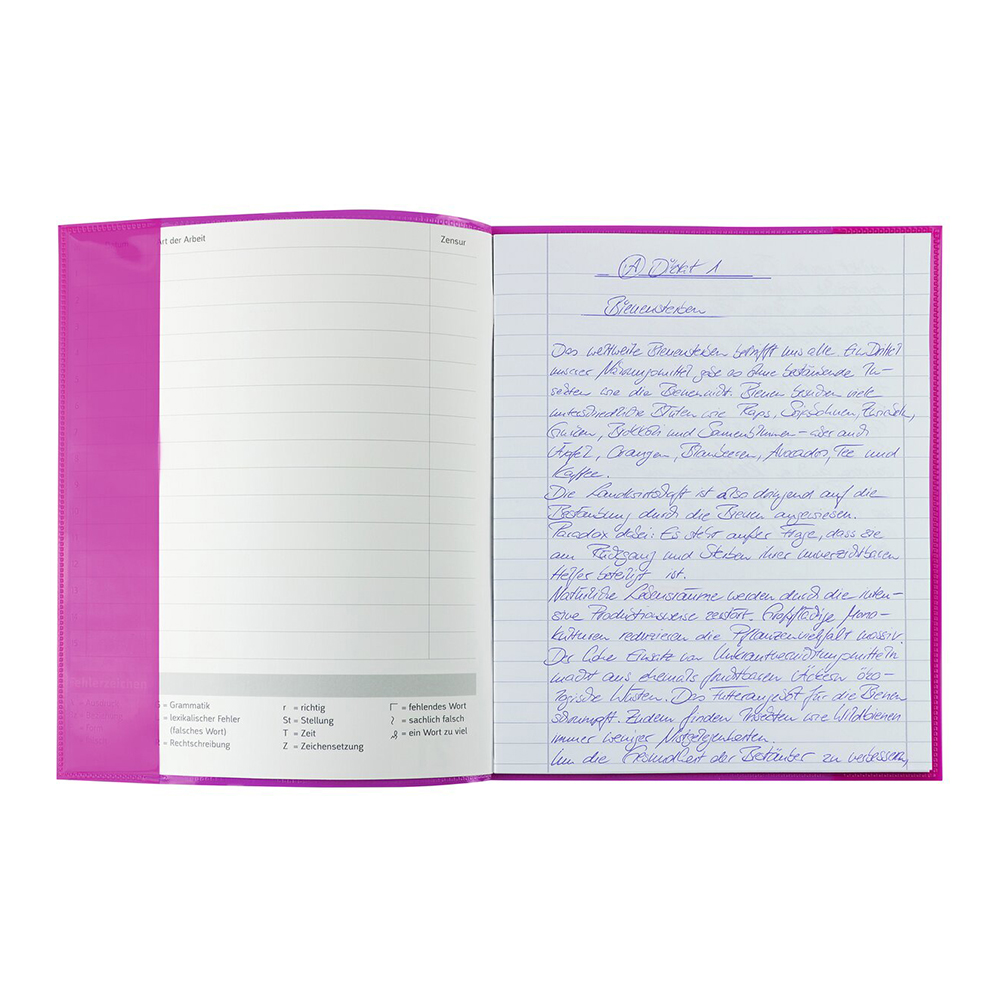 Art der Arbeit
Zensur
= Grammatik
= lexikalischer Fehler
(falsches Wort)
= Rechtschreibung
r = richtig
St = Stellung
T = Zeit
Z = Zeichensetzung
= fehlendes Wort
= sachlich falsch
= ein Wort zu viel
A Diktat 1
Bienensterben
Das weltweite Bienensterben betrifft uns alle. Ein Drittel
unserer Nahrungsmittel gäbe es ohne bestäubende In-
sekten wie die Bienen nicht. Bienen besuchen viele
unterschiedliche Blüten wie Raps, Sojabohnen, Zwiebeln,
Gurken, Brokkoli und Sonnenblumen - aber auch
Äpfel, Orangen, Blaubeeren, Avocados, Tee und
Kaffee.
Die Landwirtschaft ist also dringend auf die
Bestäubung durch die Bienen angewiesen.
Paradox dabei: Es steht außer Frage, dass sie
am Rückgang und Sterben ihrer unverzichtbaren
Helfer beteiligt ist.
Natürliche Lebensräume werden durch die inten-
sive Produktionsweise zerstört. Großflächige Mono-
kulturen reduzieren die Pflanzenvielfalt massiv.
Der hohe Einsatz von Unkrautvernichtungsmitteln
macht aus ehemals fruchtbaren Äckern öko-
logische Wüsten. Das Futterangebot für die Bienen
schrumpft. Zudem finden Insekten wie Wildbienen
immer weniger Nistgelegenheiten.
Um die Gesundheit der Bestäuber zu verbessern,